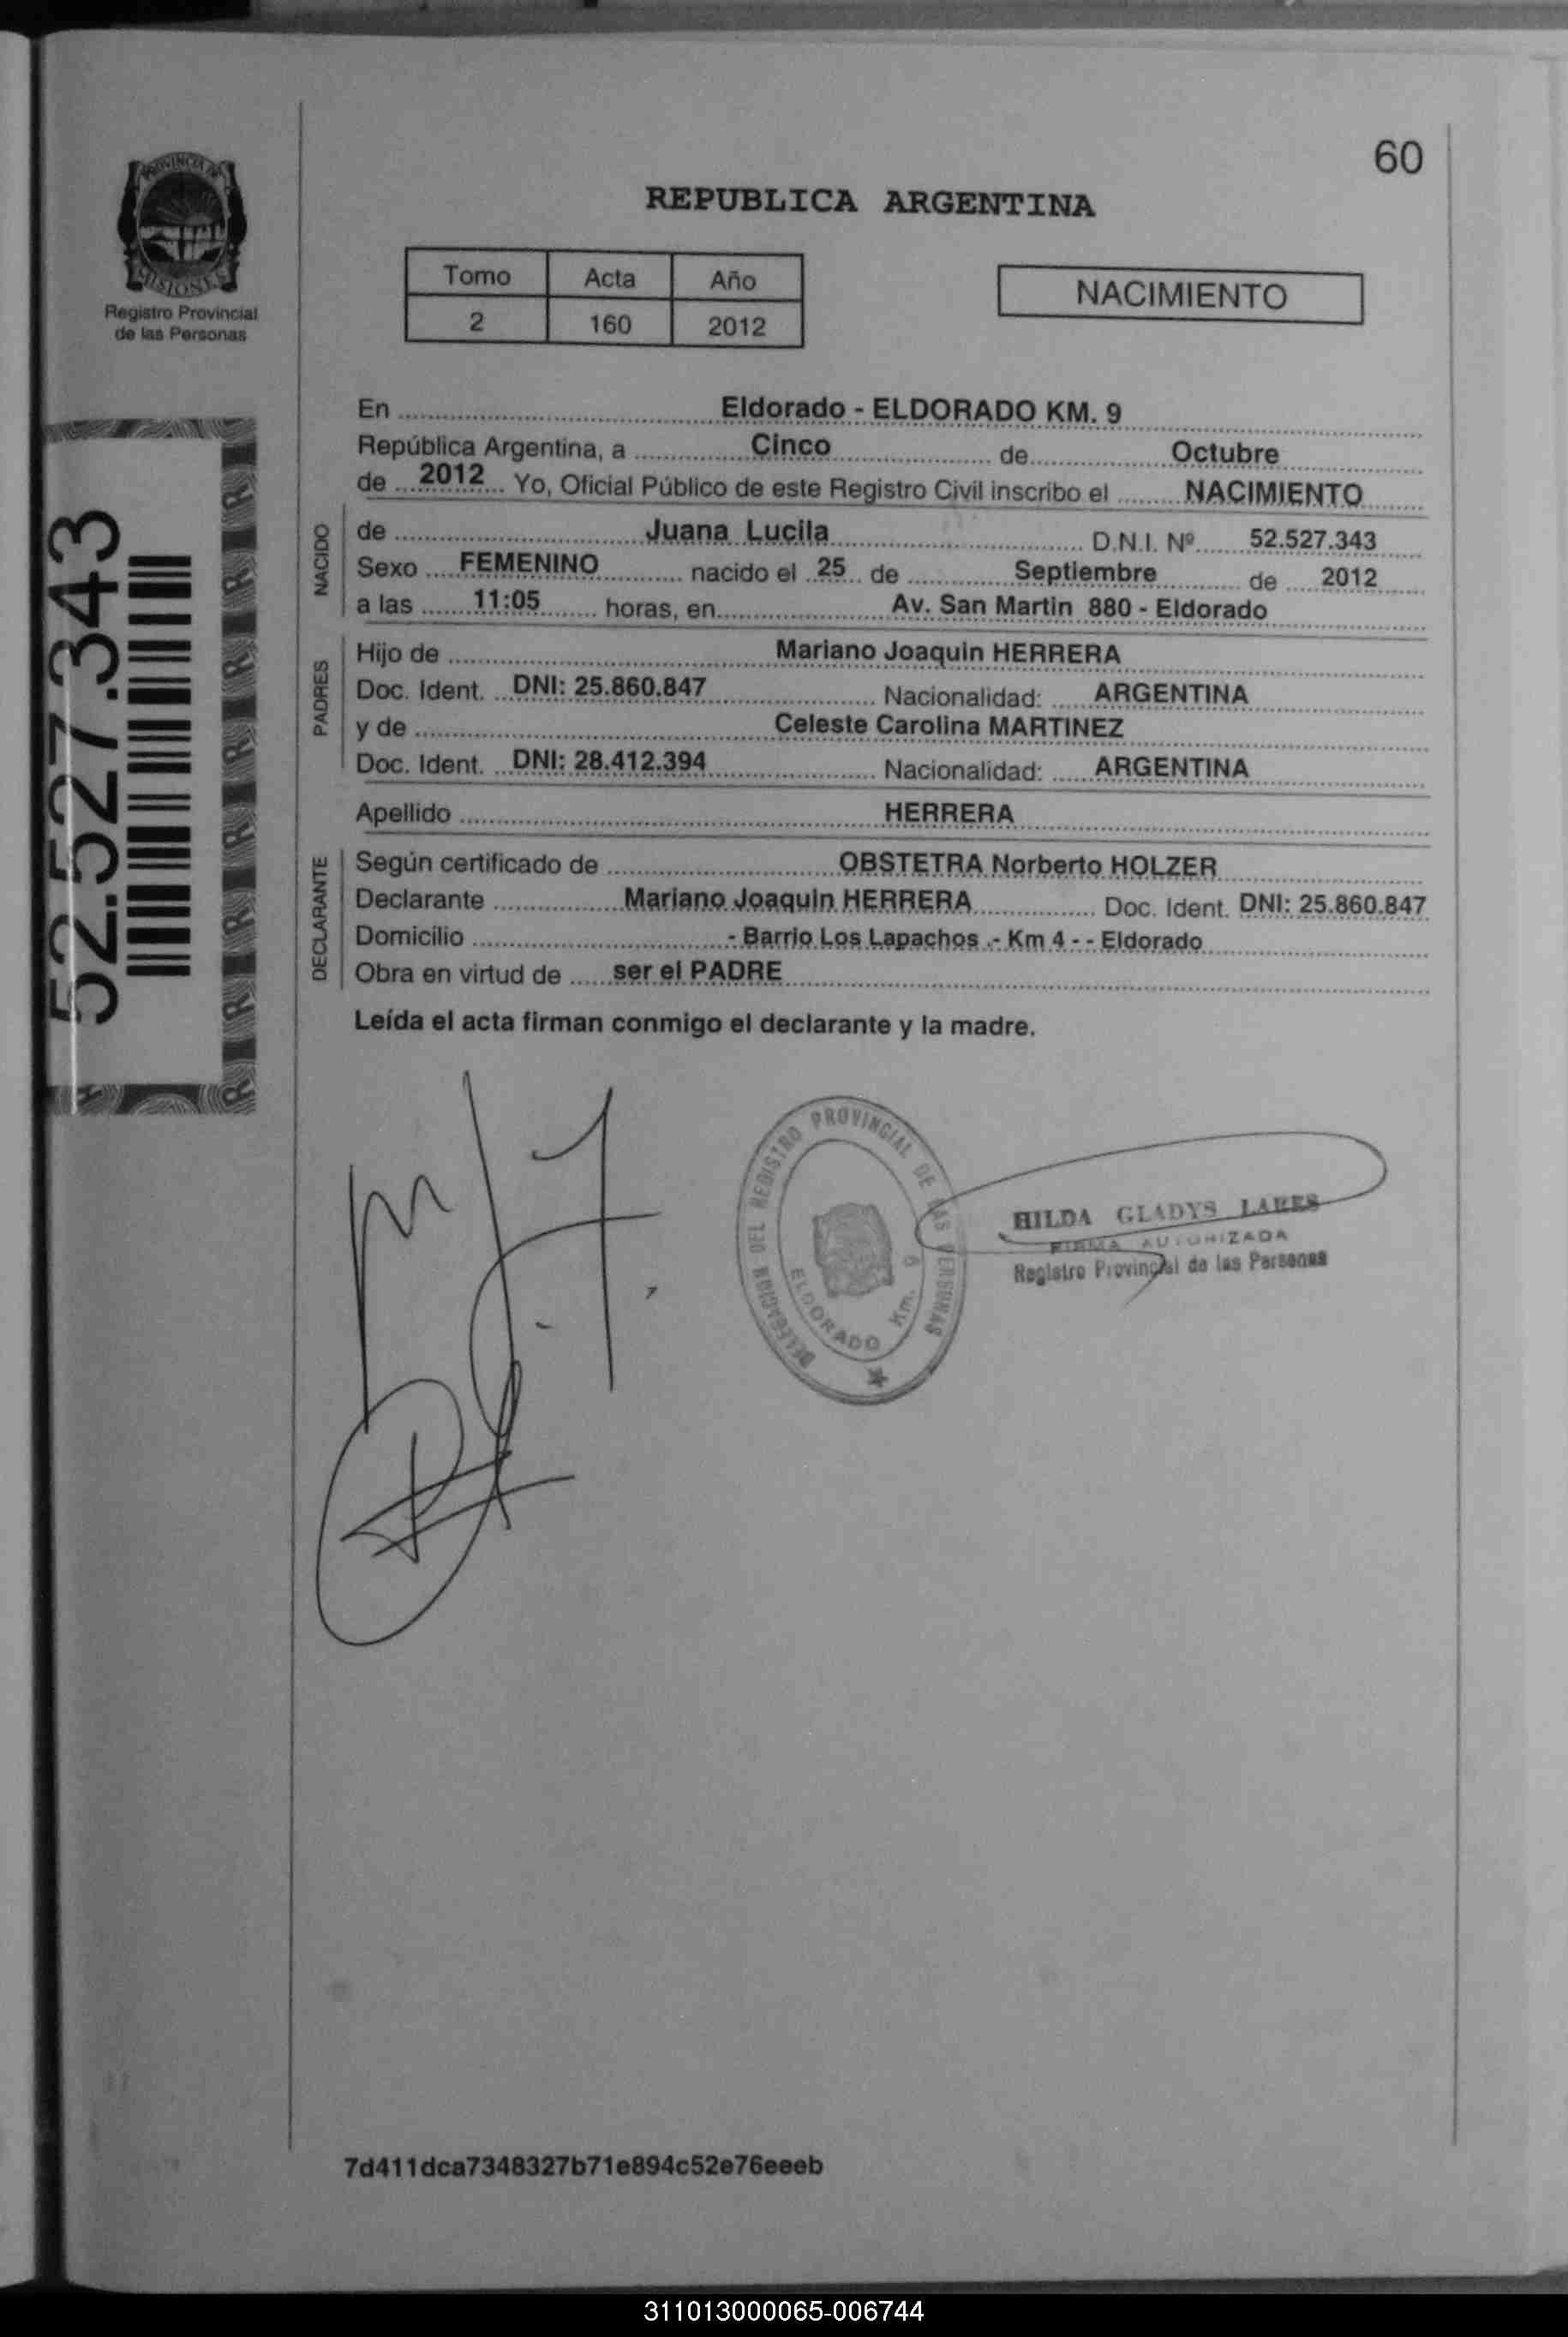 60
PROVINCIA DE
MISIONES
Registro Provincial
de las Personas
REPUBLICA ARGENTINA
Tomo Acta Año
2 160 2012
NACIMIENTO
En Eldorado - ELDORADO KM. 9
República Argentina, a Cinco de Octubre
de 2012 Yo, Oficial Público de este Registro Civil inscribo el NACIMIENTO
NACIDO
de Juana Lucila D.N.I. Nº 52.527.343
Sexo FEMENINO nacido el 25 de Septiembre de 2012
a las 11:05 horas, en Av. San Martin 880 - Eldorado
PADRES
Hijo de Mariano Joaquin HERRERA
Doc. Ident. DNI: 25.860.847 Nacionalidad: ARGENTINA
y de Celeste Carolina MARTINEZ
Doc. Ident. DNI: 28.412.394 Nacionalidad: ARGENTINA
Apellido HERRERA
DECLARANTE
Según certificado de OBSTETRA Norberto HOLZER
Declarante Mariano Joaquin HERRERA Doc. Ident. DNI: 25.860.847
Domicilio - Barrio Los Lapachos - Km 4 - - Eldorado
Obra en virtud de ser el PADRE
Leída el acta firman conmigo el declarante y la madre.
52.527.343
DELEGACION DEL REGISTRO PROVINCIAL DE LAS PERSONAS
ELDORADO Km. 9
HILDA GLADYS LARES
FIRMA AUTORIZADA
Registro Provincial de las Personas
7d411dca7348327b71e894c52e76eeeb
311013000065-006744